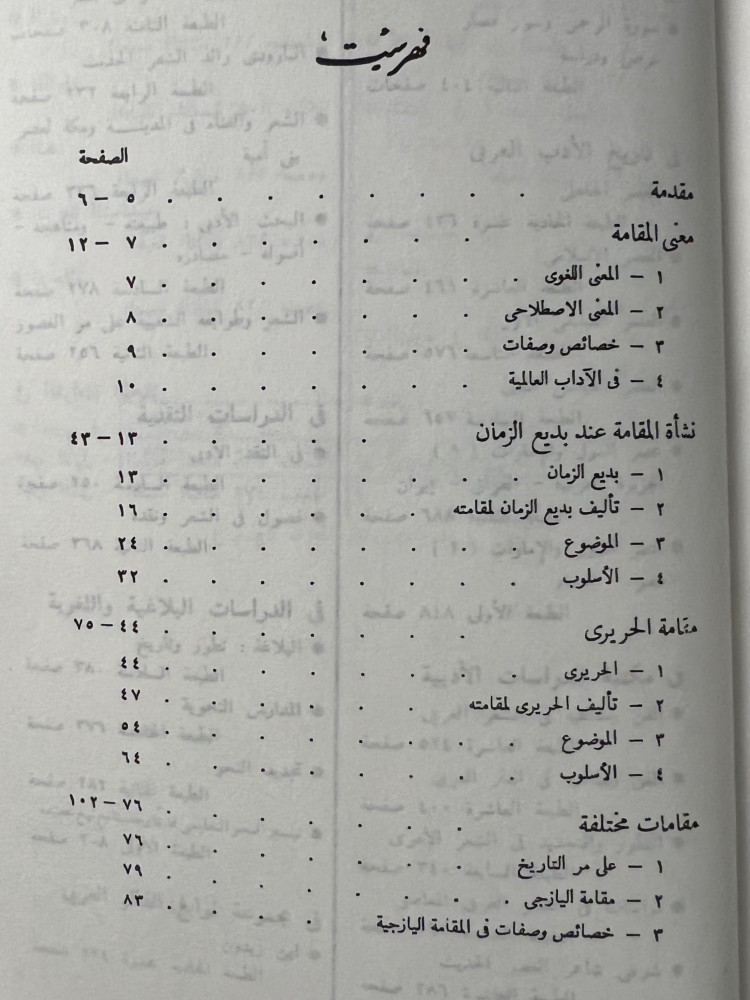 فهرست
الصفحة
مقدمة . . . . . . . . ٥ – ٦
معنى المقامة . . . . . . . ٧ – ١٢
١ – المعنى اللغوى . . . . . . . . ٧
٢ – المعنى الاصطلاحى . . . . . . . ٨
٣ – خصائص وصفات . . . . . . . ٩
٤ – فى الآداب العالمية . . . . . . . ١٠
نشأة المقامة عند بديع الزمان . . . . . ١٣ – ٤٣
١ – بديع الزمان . . . . . . . . ١٣
٢ – تأليف بديع الزمان لمقامته . . . . . . ١٦
٣ – الموضوع . . . . . . . . ٢٤
٤ – الأسلوب . . . . . . . . ٣٢
مقامة الحريرى . . . . . . . ٤٤ – ٧٥
١ – الحريرى . . . . . . . . ٤٤
٢ – تأليف الحريرى لمقامته . . . . . . ٤٧
٣ – الموضوع . . . . . . . . ٥٤
٤ – الأسلوب . . . . . . . . ٦٤
مقامات مختلفة . . . . . . . ٧٦ – ١٠٢
١ – على مر التاريخ . . . . . . . ٧٦
٢ – مقامة اليازجى . . . . . . . . ٧٩
٣ – خصائص وصفات فى المقامة اليازجية . . . . ٨٣